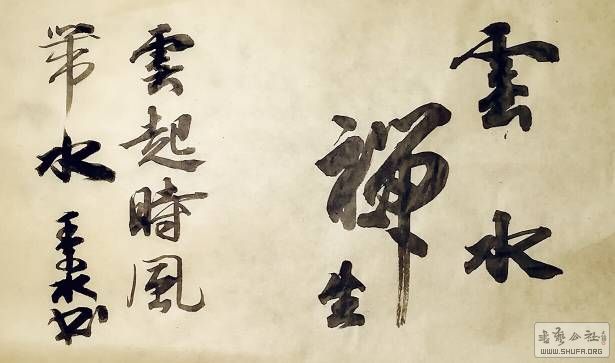 雲水
禪生
雲起時風
帶水
书艺公社
WWW.SHUFA.ORG